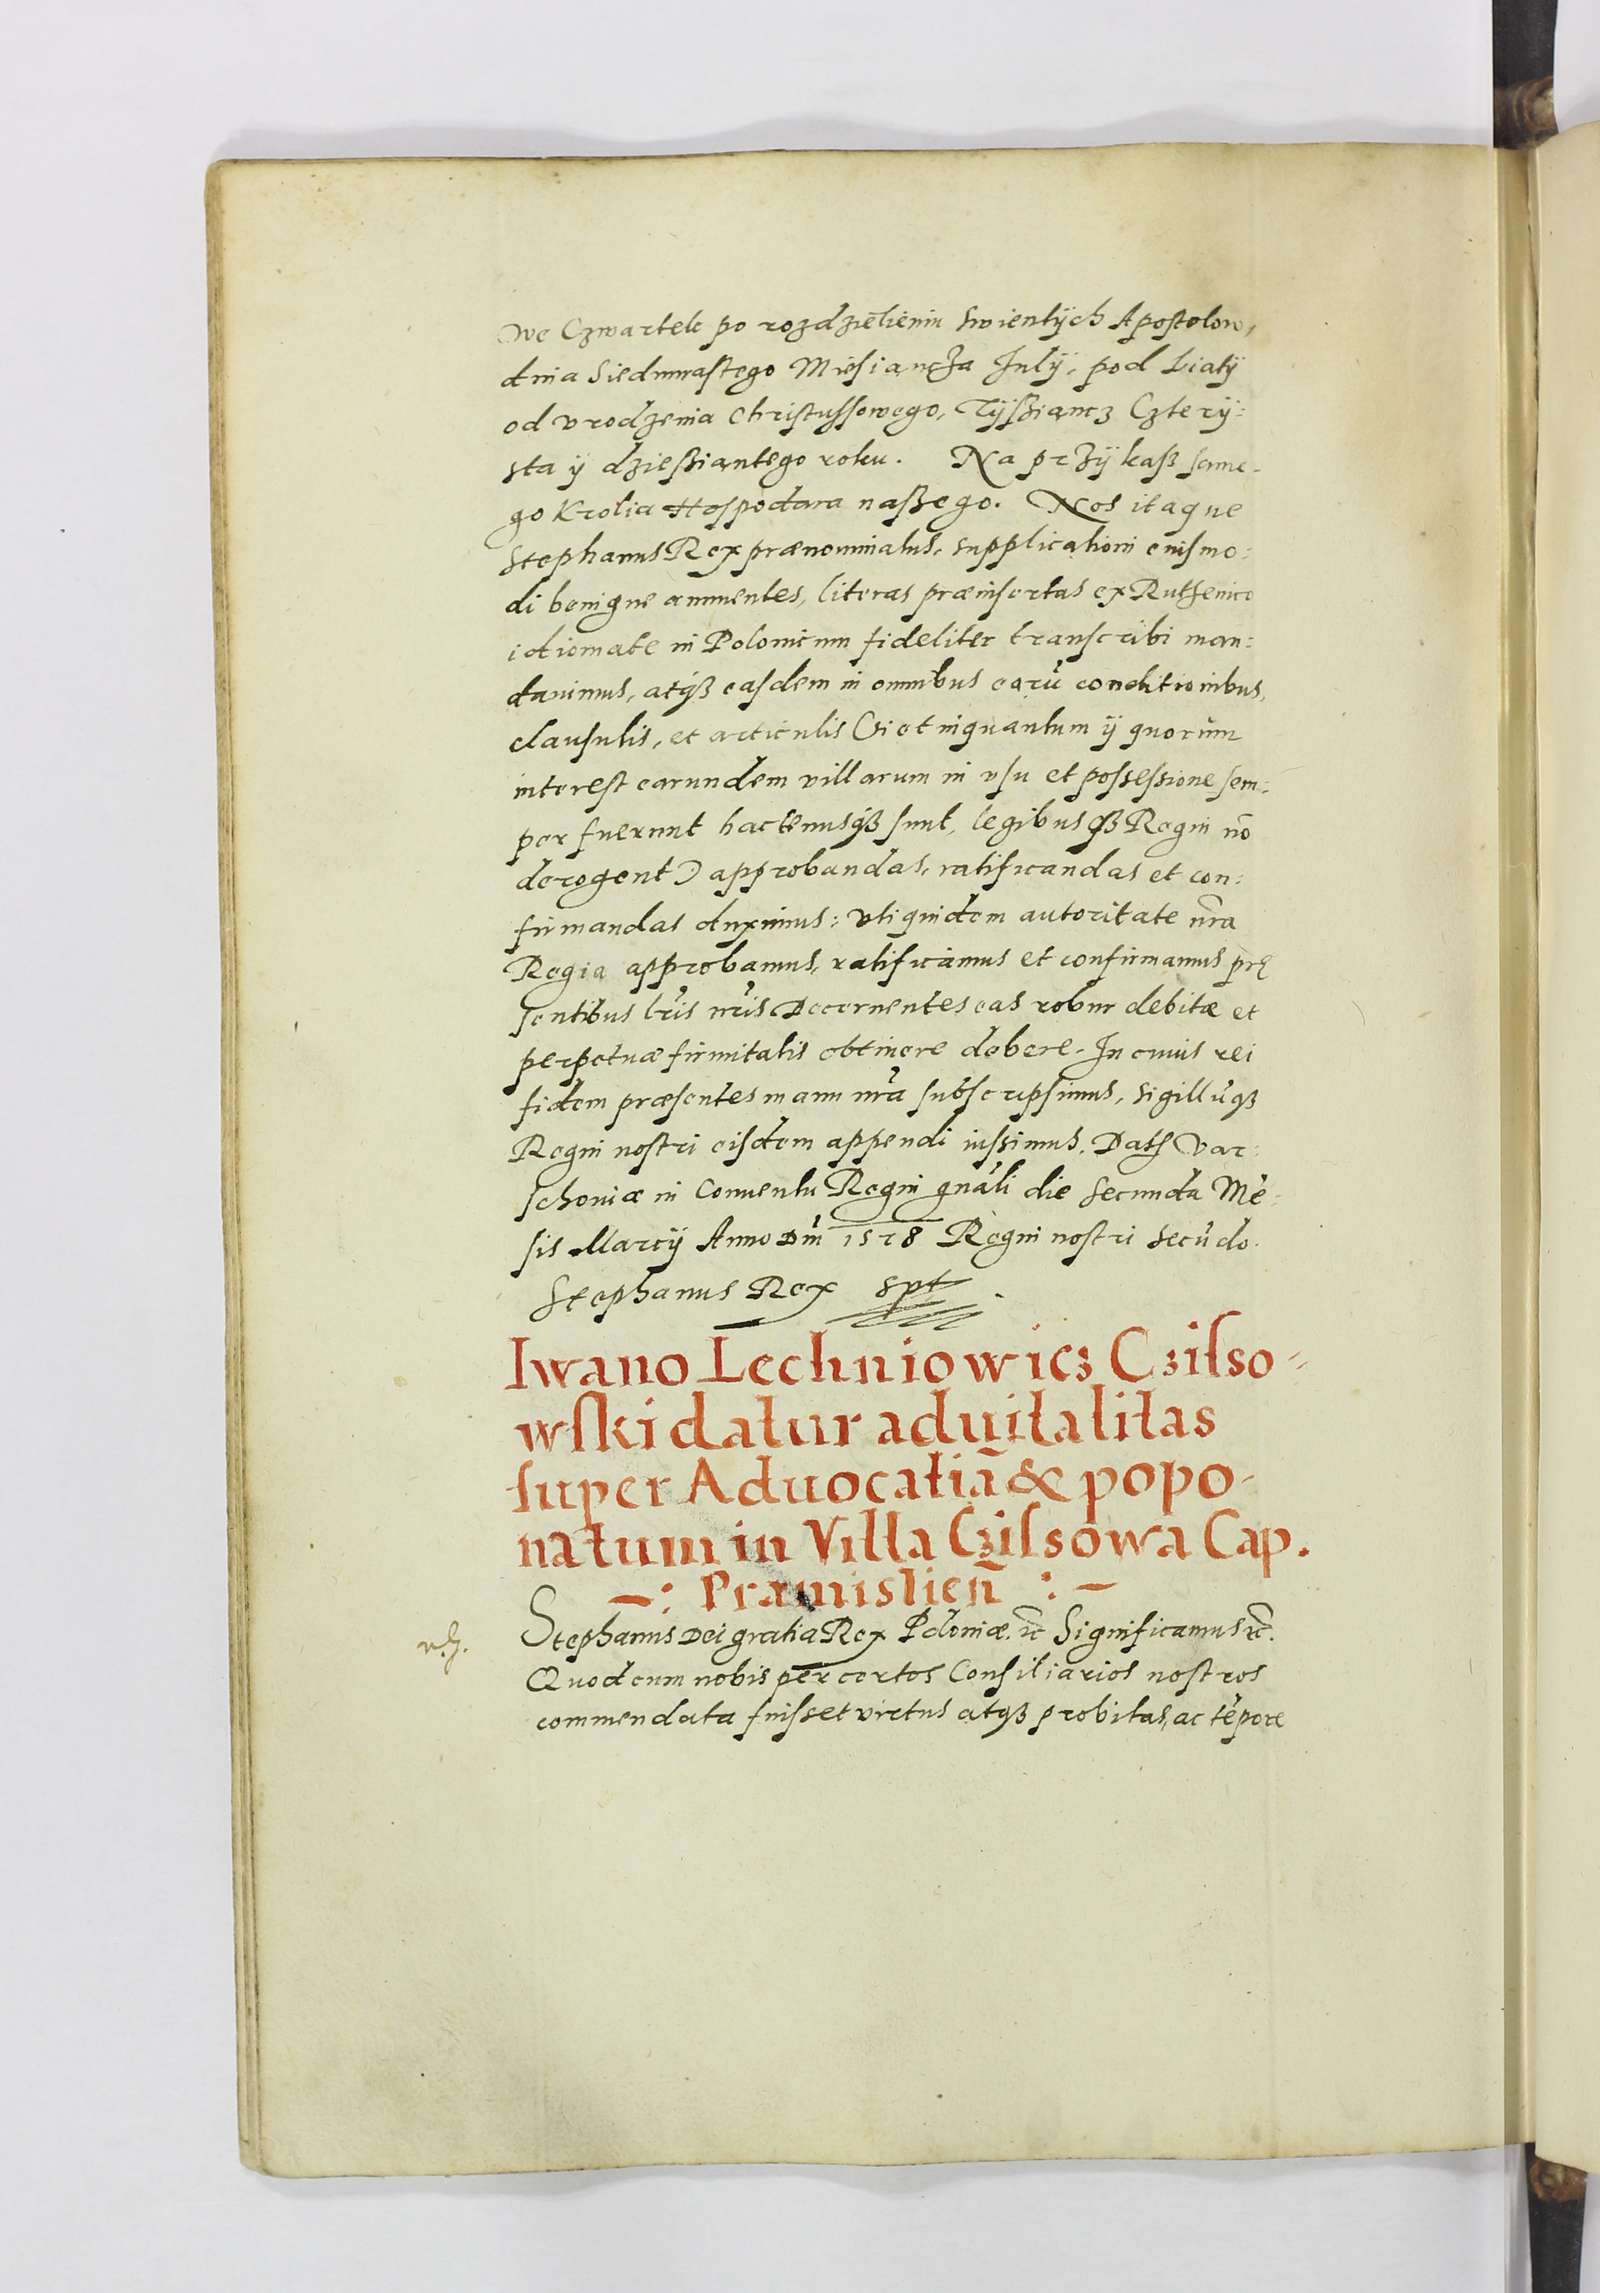 we Czwartek po rozdzielieniu Swientÿch Apostolow,
dnia Siedmnastego Miesiancza Julÿ, pod Liatÿ
od vrodzenia Christussowego, Tÿssziancz Czterÿ-
sta ÿ dziesziantego roku. Na przÿkasz same-
go Krolia Hospodara naszego. Nos itaque
Stephanus Rex prænominatus, supplicationi euismo-
di benigne annuentes, literas præinsertas ex Ruthenico
idiomate in Polonicum fideliter transcribi man-
davimus, atqȝ easdem in omnibus earū conditionibus,
clausulis, et articulis (Si et inquantum ÿ quorum
interest earundem villarum in vsu et possessione sem-
per fuerunt hactenusqȝ sunt, legibusqȝ Regni nō
derogent) approbandas, ratificandas et con-
firmandas duximus: vti quidem autoritate nr̃a
Regia approbamus, ratificamus et confirmamus præ
sentibus lr̃is nr̃is Decernentes eas robur debitæ et
perpetuæ firmitatis obtinere debere. In cuius rei
fidem præsentes manu nr̃a subscripsimus, sigillūqȝ
Regni nostri eisdem appendi iussimus. Dat͠ Var-
schoviæ in Conventu Regni gnãli die Secunda Mē-
sis Marcÿ Anno Dn̄i 1578 Regni nostri Secūdo.
Stephanus Rex spt
Iwano Lechniowicz Czilso-
wski datur aduitalitas
super Aduocatiā & popo-
natum in Villa Czilsowa Cap.
-: Præmislien̄ :-
rz.
Stephanus Dei gratia Rex Poloniæ, etc Significamus etc.
Quod cum nobis per certos Consiliarios nostros
commendata fuisset virtus atqȝ probitas, ac tēpore